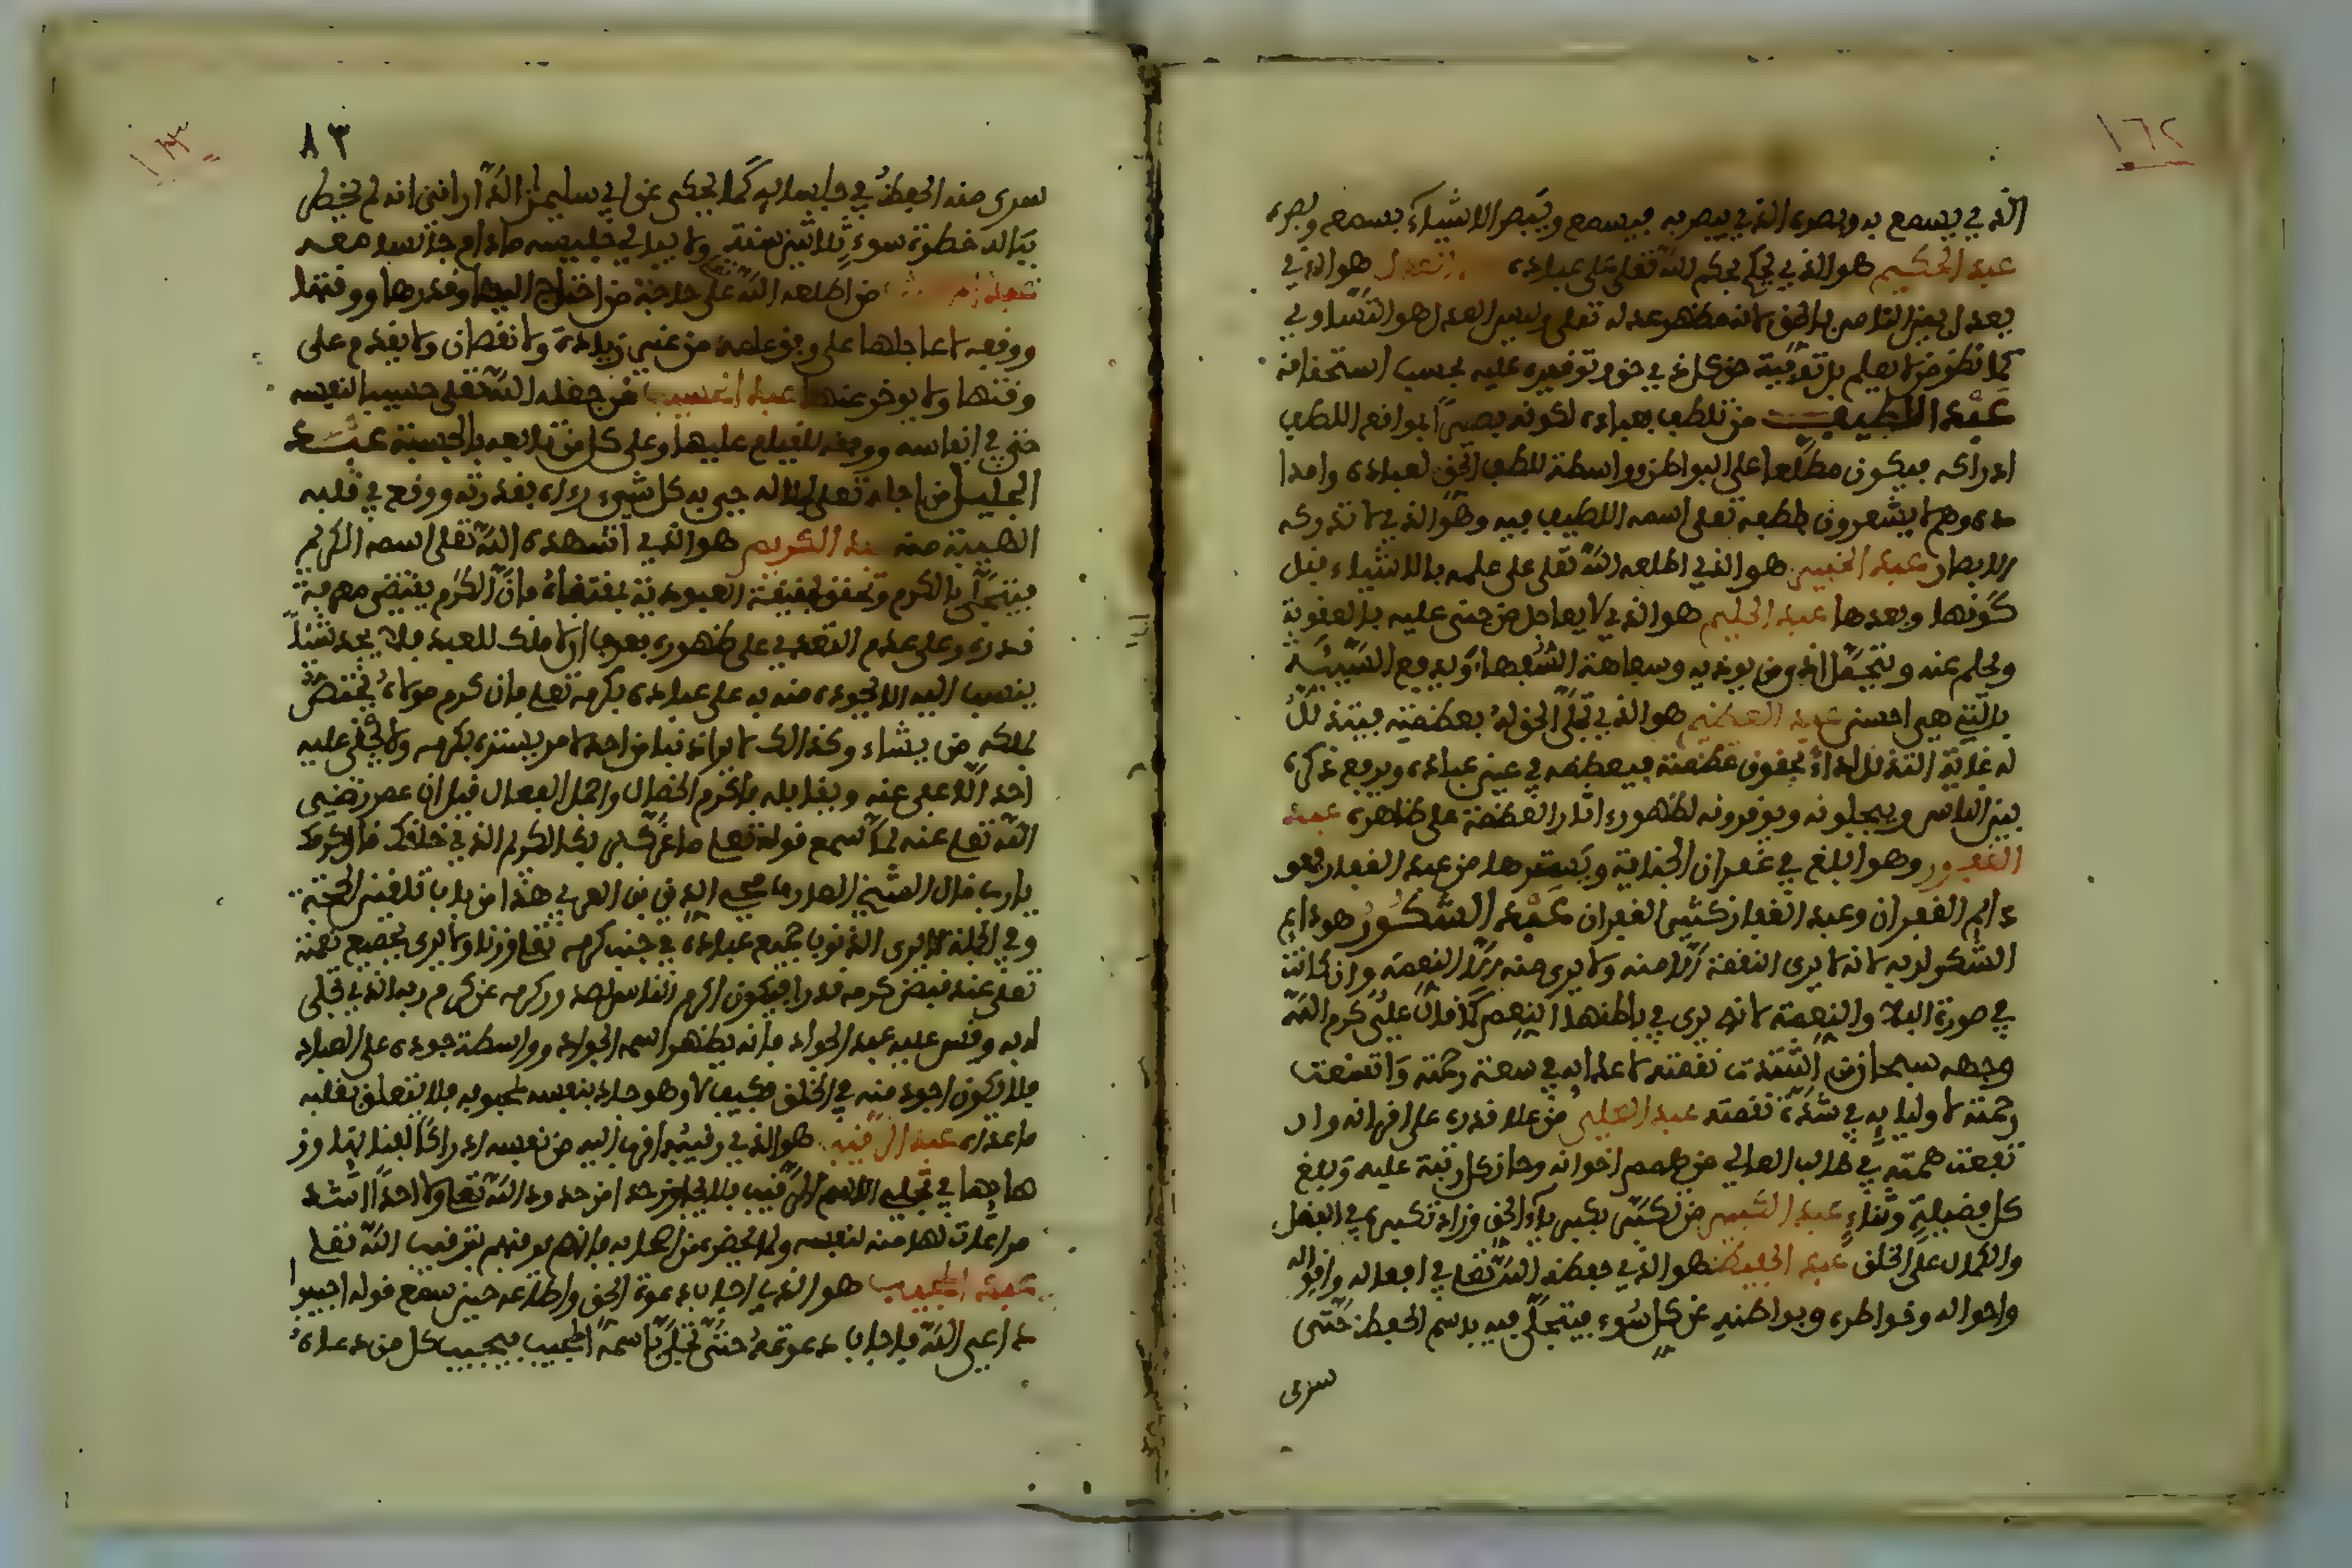 ١٦٢
الذي يسمع به وبصره الذي يبصر به فيسمع ويبصر الاشياء بسمعه وبصره
عبد الحكيم هو الذي يحكم بحكم الله تعلى على عباده العدل هو الذي
يعدل بين الناس بالحق لانه مظهر عدله تعلى وليس العدل هو التساوي
كما نظن من لا يعلم بل توفية حق كل ذي حق وتوفيره عليه بحسب استحقاقه
عبد اللطيف من تلطف بعباده لكونه بصيرا بمواقع اللطف
ادراكه فيكون مطلعا على البواطن وواسطة للطف الحق لعباده وامدا
ده وهم لا يشعرون للطفه تعلى اسمه اللطيف فيه وهو الذي لا تدركه
الابصار عبد الخبير هو الذي اطلعه الله تعلى على علمه بالاشياء قبل
كونها وبعدها عبد الحليم هو الذي لا يعاجل من جنى عليه بالعقوبة
ويحلم عنه ويتحمل اذى من يوذيه وسفاهة السفهاء ويدفع السيئة
بالتي هي احسن عبد العظيم هو الذي تجلى الحق له بعظمته فيتذلل
له غاية التذلل اداء لحقوق عظمته فيعظمه في عين عباده ويرفع ذكره
بين الناس ويبجلونه ويوقرونه لظهور اثار العظمة على ظاهره عبد
الغفور وهو ابلغ في غفران الجناية ويسترها من عبد الغفار فهو
دايم الغفران وعبد الغفار كثير الغفران عبد الشكور هو دايم
الشكر لربه لانه لا يرى النعمة الا منه ولا يرى منه الا النعمة وان كانت
في صورة البلاء والنقمة لانه يرى في باطنها النعم كما قال علي كرم الله
وجهه سبحان من اشتدت نقمته لاعدايه في سعة رحمته واتسعت
رحمته لاوليايه في شدة نقمته عبد العلي من علا قدره على اقرانه وار
تفعت همته في طلب المعالي من همم اخوانه وحاز كل رتبة علية وبلغ
كل فضيلة وثناء عبد الكبير من تكبر بكبرياء الحق وزاد تكبره في الفضل
والكمال على الخلق عبد الحفيظ هو الذي حفظه الله تعلى في افعاله واقواله
واحواله وخواطره وبواطنه عن كل سوء فيتجلى فيه باسم الحفيظ حتى
سرى
٨٣
سرى منه الحفظ في جلسايه كما يحكى عن ابي سليمن الداراني انه لم يخطر
بباله خطرة سوء ثلاثين سنة ولا ببال جليسه مادام جالسا معه
من اطلعه الله تعلى على حاجة من احتاج اليها وقدرها ووقتها
ووفقه لانجاحها على وفق علمه من غير زيادة ولا نقصان ولا يقدم على
وقتها ولا يوخر عنها عبد الحسيب من جعله الله تعلى حسيبا لنفسه
حتى في انفاسه ووفقه للقيام عليها وعلى كل من تابعه بالحسبة عبد
الجليل من اجله تعلى بجلاله حتى يهابه كل شيء رءاه بقدرته ووقع في قلبه
الهيبة منه عبد الكريم هو الذي اشهده الله تعلى اسمه الكريم
فيتجلى بالكرم وتحقق بحقيقة العبودية بمقتضاه فان الكرم يقتضي معرفة
قدره وعلى عدم التعدي على ظهوره يعرف ان لا ملك للعبد فلا يجد شيئا
ينسب اليه الا لجوده منه به على عباده بكرمه تعلى فان كرم مولاه يختص
بملكه من يشاء وكذالك لا يرا ذنبا من احد الا من يستره بكرمه ولا يجني عليه
احد الا عفى عنه ويقابله باكرم الخصال واجمل الفعال قيل ان عمر رضي
الله تعلى عنه لما سمع قوله تعلى ما غرك بربك الكريم الذي خلقك قال كرمك
يارب قال الشيخ العارف محي الدين بن العربي هذا من باب تلقين الحجة
وفي الجملة لا يرى الذنوب جميع عباده في جنب كرمه تعلى وزنا ولا يرى لجميع نعمه
تعلى عند فيض كرمه قدرا فيكون اكرم الناس لصدور كرمه عن كرم ربه الذي تجلى
له به وقس عليه عبد الجواد فانه يظهر اسم الجواد وواسطة جوده على العباد
فلا يكون اجود منه في الخلق فكيف لا وهو جاد بنفسه لمحبوبه فلا يتعلق بقلبه
ما عداه عبد الرقيب هو الذي رقيبه اقرب اليه من نفسه ادراكا لفنايها وذ
هابها في تجلي الاسم الرقيب فلا يجاوز حدا من حدود الله تعلى ولا احدا اشد
مراعات لها منه لنفسه ولمن يحضر من اصحابه فانه يرقبهم برقيب الله تعلى
عبد المجيب هو الذي اجاب دعوة الحق واطاعه حين سمع قوله اجيبوا
داعي الله فاجاب دعوته حتى تجلى باسمه المجيب فيجيب كل من دعاه